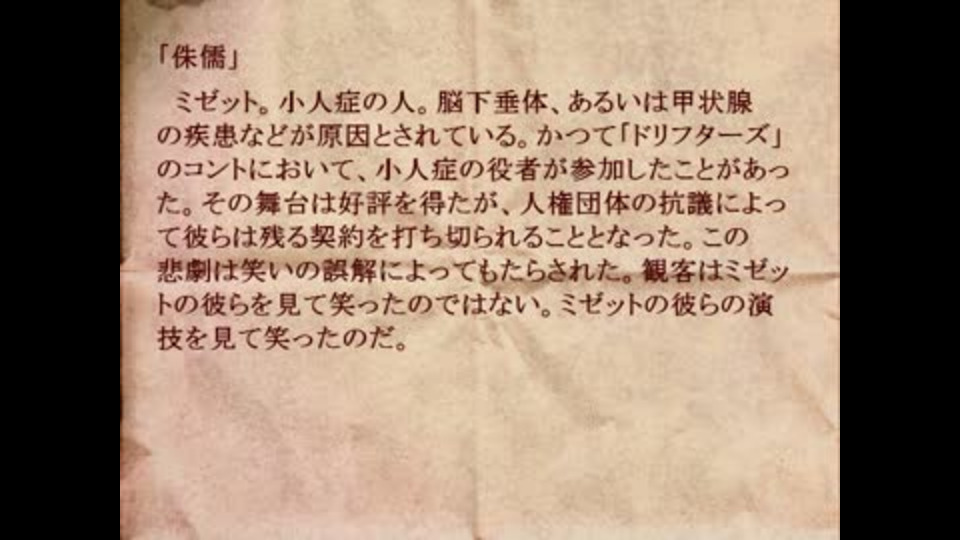 「侏儒」
ミゼット。小人症の人。脳下垂体、あるいは甲状腺
の疾患などが原因とされている。かつて「ドリフターズ」
のコントにおいて、小人症の役者が参加したことがあっ
た。その舞台は好評を得たが、人権団体の抗議によっ
て彼らは残る契約を打ち切られることとなった。この
悲劇は笑いの誤解によってもたらされた。観客はミゼッ
トの彼らを見て笑ったのではない。ミゼットの彼らの演
技を見て笑ったのだ。